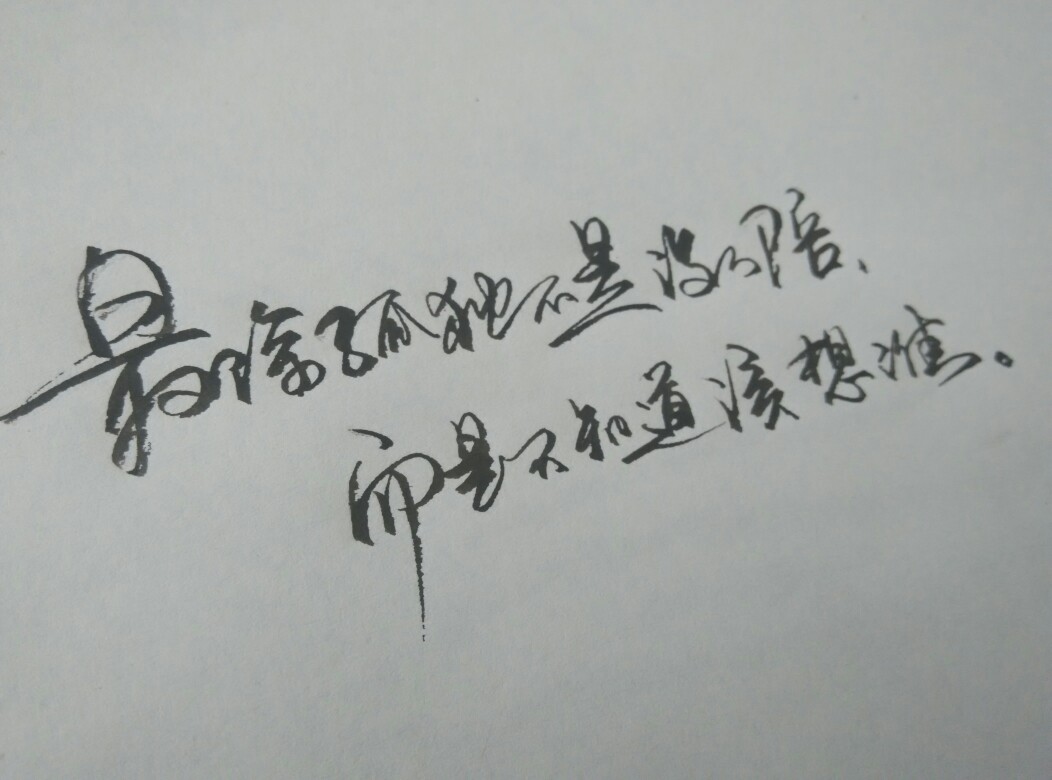 最深孤独不是没人陪、
而是不知道该想谁。